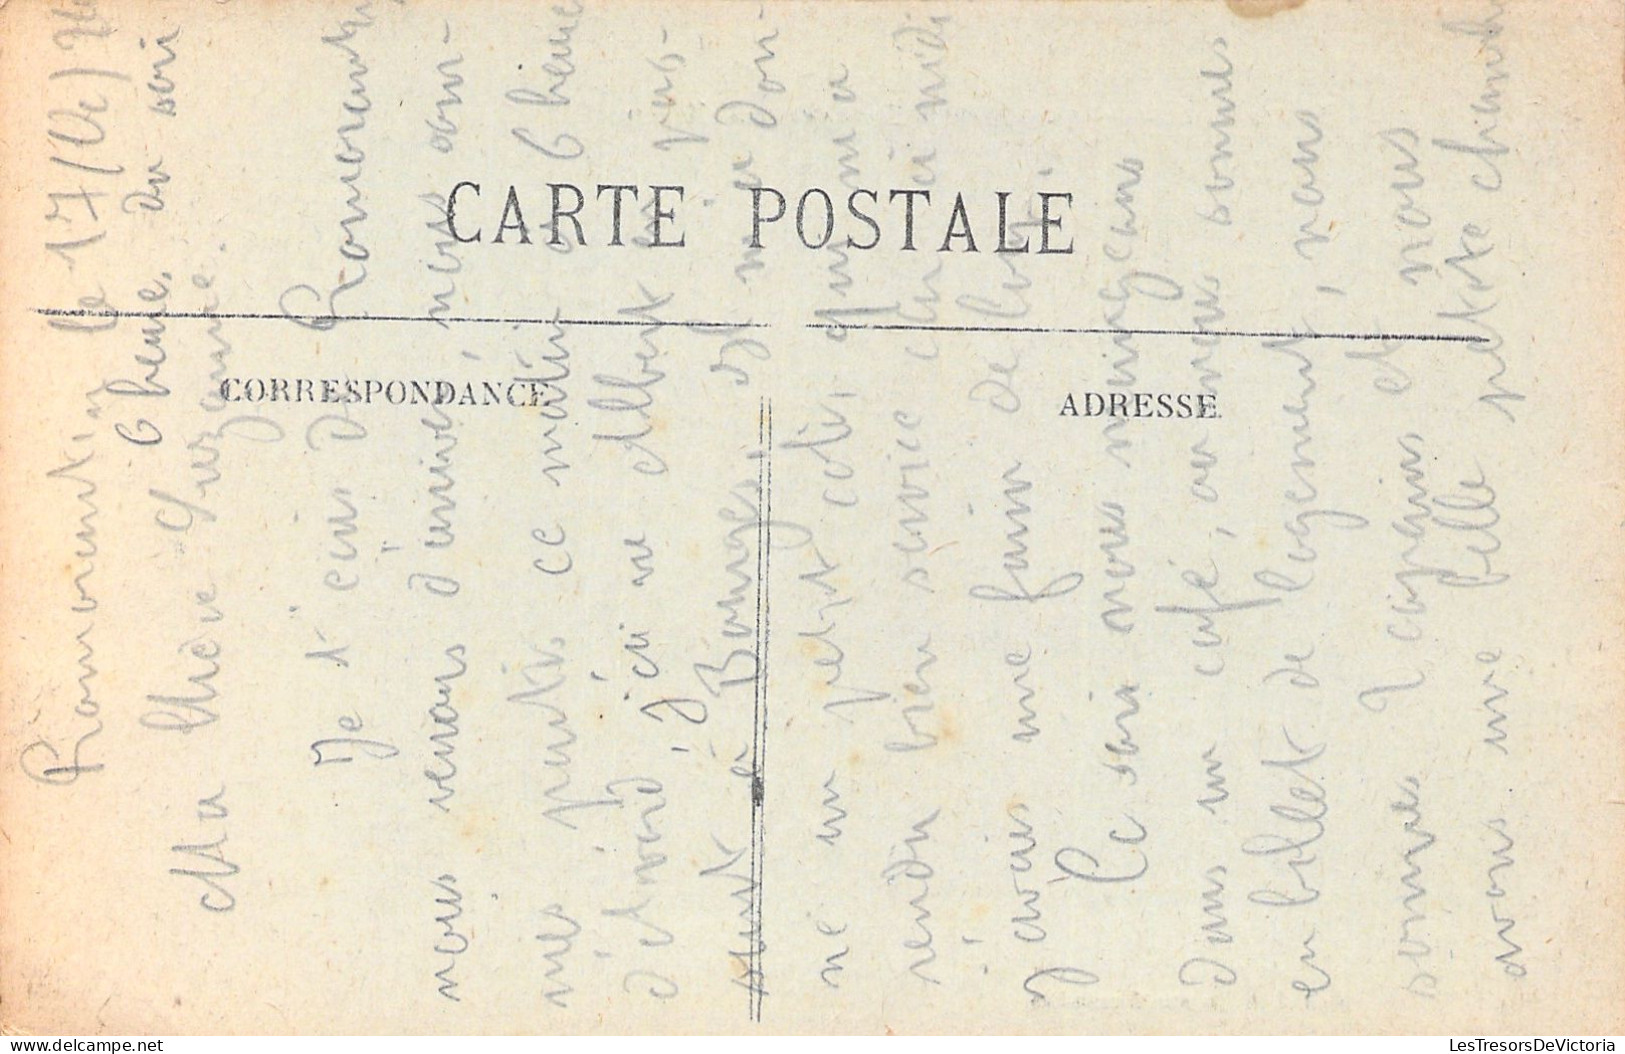 CARTE POSTALE
CORRESPONDANCE
ADRESSE
Romorantin le 17/
6 heure, du soir
Ma Chère Suzanne.
Je t'écris de Romorantin
nous venons d'arriver, nous som-
mes partis ce matin a 6 heure
d'Avord, j'ai vu Albert en pas-
sant à Bourges, il m'a don-
né un petit colis, qui m'a
rendu bien service car à midi
j'avais une faim de loup.
Ce soir nous mangeons
dans un café, ou nous sommes
en billet de logement, nous
sommes 2 copains et nous
avons une belle petite chambre
LesTresorsDeVictoria